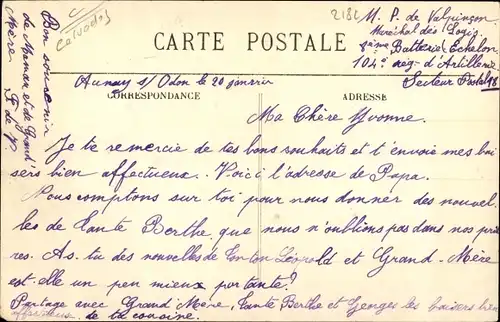 Calvados
2182
M. P. de Valpinçon
Maréchal des Logis
Batterie Echelon
104e rég. d'Artillerie
Secteur Postal
CARTE POSTALE
Aunay s/ Odon le 20 janvier
CORRESPONDANCE
ADRESSE
Ma Chère Yvonne.
Je te remercie de tes bons souhaits et t'envoie mes bai
sers bien affectueux. Voici l'adresse de Papa.
Nous comptons sur toi pour nous donner des nouvel
les de Tante Berthe que nous n'oublions pas dans nos priè
res. As-tu des nouvelles de Tonton Léopold et Grand-Mère
est-elle un peu mieux portante?
Partage avec Grand Mère, Tante Berthe et Georges les baisers bien
affectueux de ta cousine.
Bon souvenir
de Maman et de Grand'
Mère